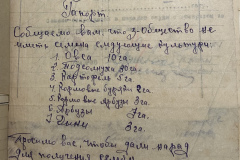 Рапорт
Сообщаем вам, что з-Общество не
имеет семена следующие культури:
1. Овса 10 га.
2. Подсолнуха 20 га.
3. Картофель 5 га.
4. Кормовые буряки 2 га.
5. Кормовые арбузы 3 га.
6. Арбузы 7 га.
7. Дыни 3 га.
Просимо вас, чтобы дали наряд
для получения семян